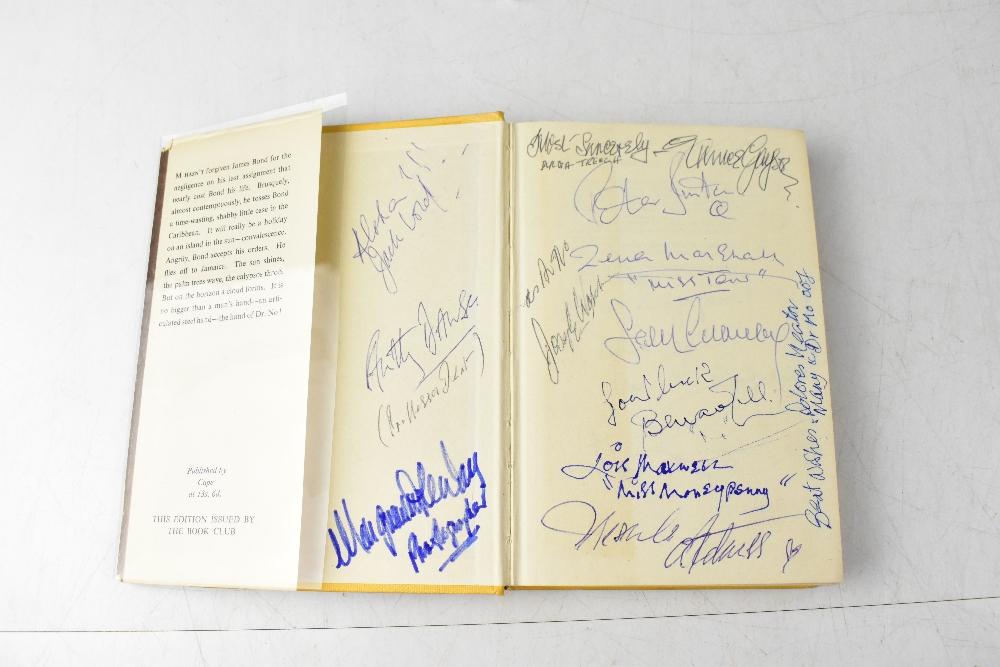 M HASN'T forgiven James Bond for the
negligence on his last assignment that
nearly cost Bond his life. Brusquely,
almost contemptuously, he tosses Bond
a time-wasting, shabby little case in the
Caribbean. It will really be a holiday
on an island in the sun—convalescence.
Angrily, Bond accepts his orders. He
flies off to Jamaica. The sun shines,
the palm trees wave, the calypsos throb.
But on the horizon a cloud forms. It is
no bigger than a man's hand—an arti-
culated steel hand—the hand of Dr. No!
Published by
Cape
at 13s. 6d.
THIS EDITION ISSUED BY
THE BOOK CLUB
Aloha!!!
Jack Lord!
(Professor Dent)
Photographer
Most Sincerely
Eunice Gayson
Peter Burton
Q
as Dr No
Joseph Wiseman
Zena Marshall
"Miss Taro"
Good luck
Lois Maxwell
"Miss Moneypenny"
Ursula Andress
Best Wishes Dolores Keator
Mary in Dr No 007